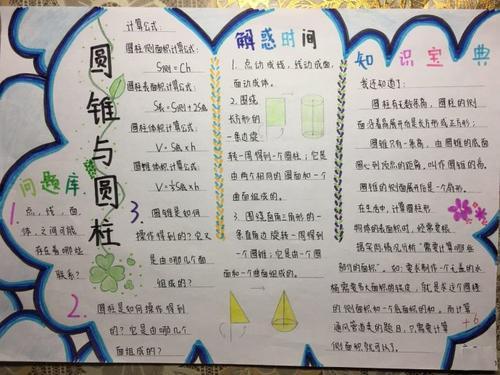 圆锥与圆柱
问题库
1. 点，线，面，
体，之间可能
存在着哪些
联系？
2. 圆柱是如何操作得到
的？它是由哪几个
面组成的？
3. 圆锥是如何
操作得到的？它又
是由哪几个面
组成的？
计算公式：
圆柱侧面积计算公式：
S侧=Ch
圆柱表面积计算公式：
S表=S侧+2S底
圆柱体积计算公式：
V=S底×h
圆锥体积计算公式：
V=⅓S底×h
解惑时间
1. 点动成线，线动成面，
面动成体。
2. 围绕
长方形的
一条边旋
转一周得到一个圆柱；它是
由两个相同的圆面和一个
曲面组成的。
3. 围绕直角三角形的一
条直角边旋转一周得到
一个圆锥；它是由一个圆
面和一个曲面组成的。
知识宝典
我还知道了：
圆柱有无数条高，圆柱的侧
面沿着高展开后是长方形或正方形；
圆锥只有一条高，由圆锥的底面
圆心到顶点的距离，叫作圆锥的高。
圆锥的侧面展开后是一个扇形。
在生活中，计算圆柱形
物体的表面积时，经常要根
据实际情况分析“需要计算哪些
部分的面积”。如：要求制作一个无盖的水
桶需要多大面积的铁皮，就是求这个圆柱
的侧面积和一个底面积的和。而计算
通风管道类的题目，只需要计算
侧面积就可以了。